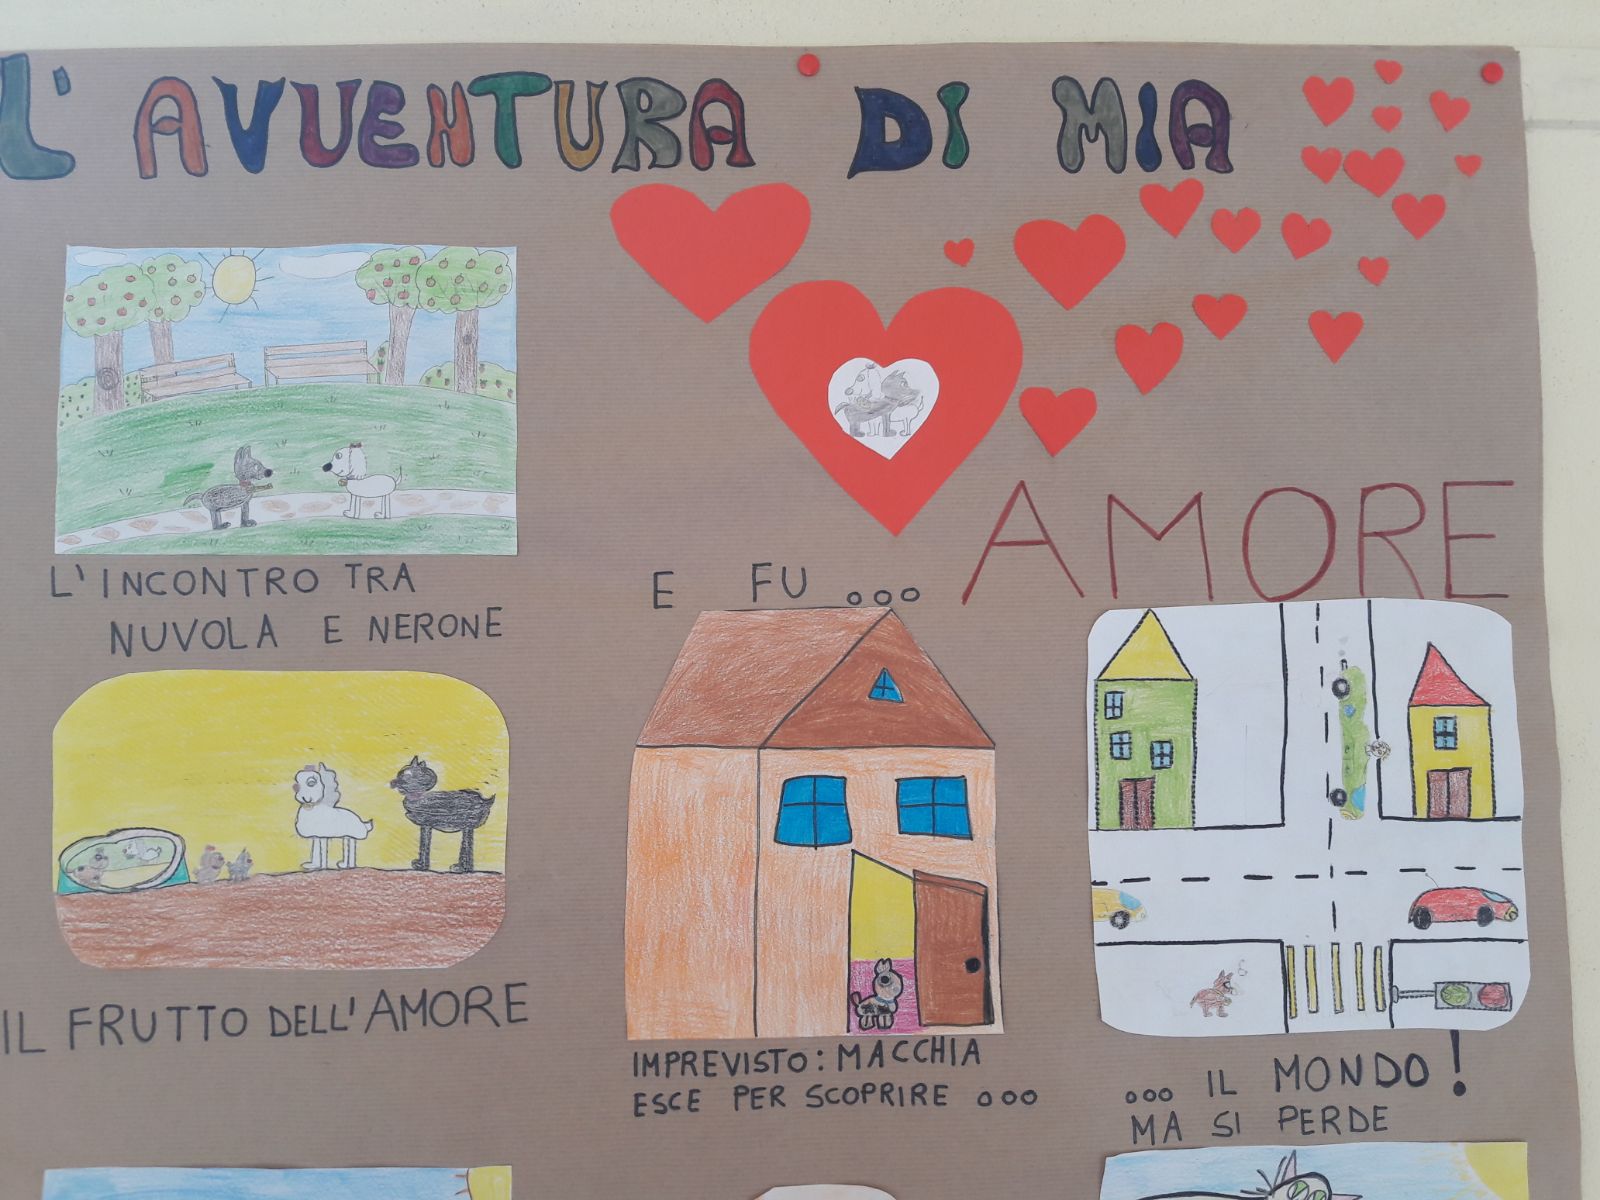 L'AVVENTURA DI MIA
L'INCONTRO TRA
NUVOLA E NERONE
E FU ... AMORE
IL FRUTTO DELL'AMORE
IMPREVISTO: MACCHIA
ESCE PER SCOPRIRE ...
... IL MONDO!
MA SI PERDE